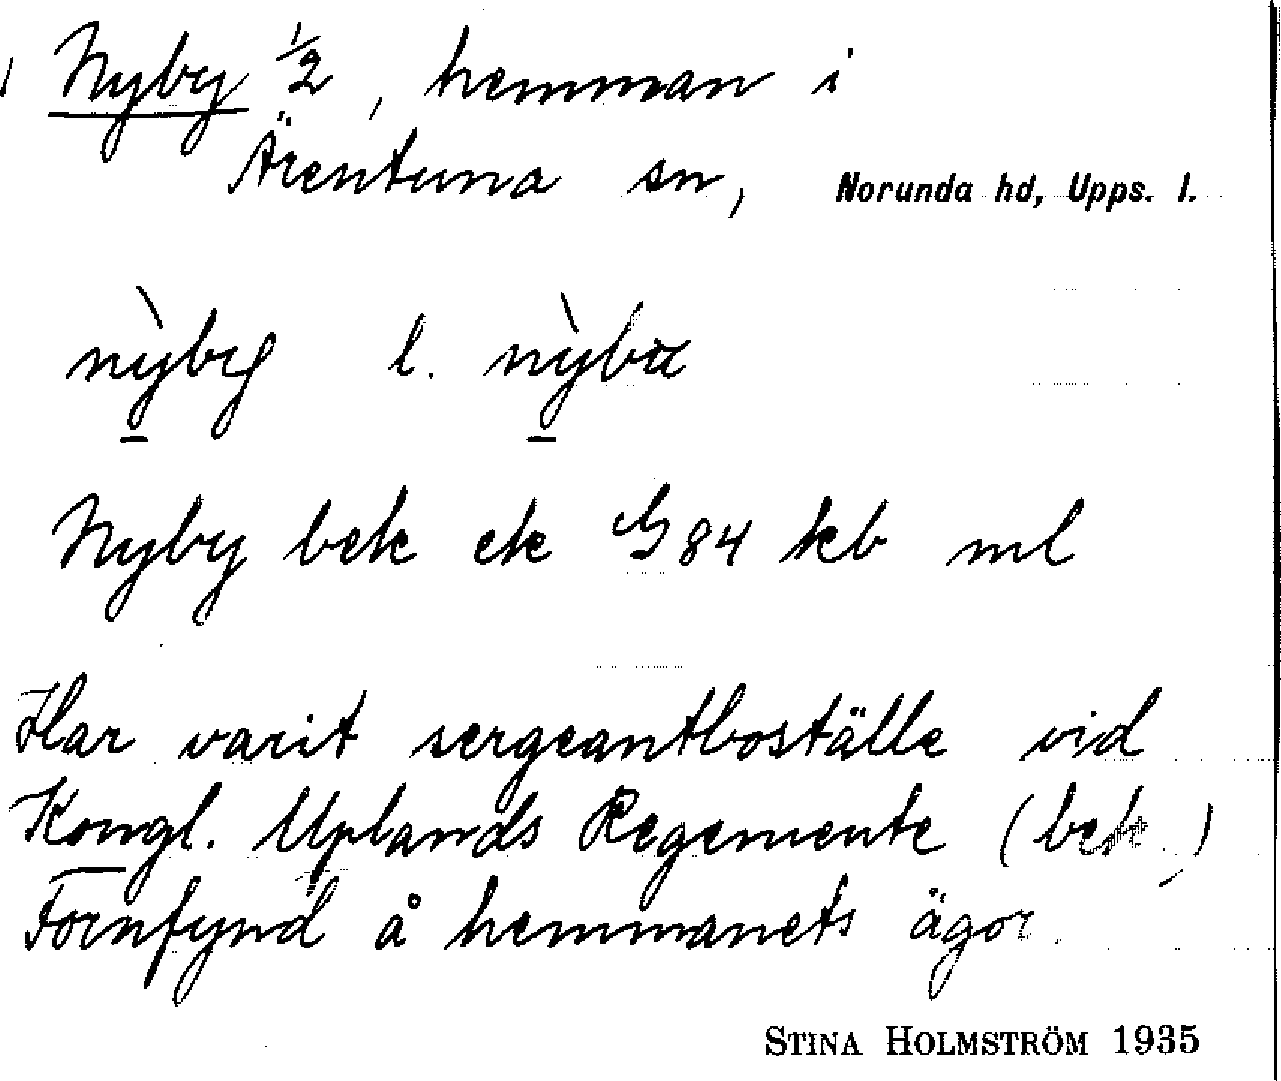 Nyby 1/2, hemman i
Ärentuna sn, Norunda hd, Upps. l.
nỳby l. nỳbɯ
Nyby bek ek G 84 kb ml
Har varit sergeantboställe vid
Kongl. Uplands Regemente (bek.)
Fornfynd å hemmanets ägor.
STINA HOLMSTRÖM 1935